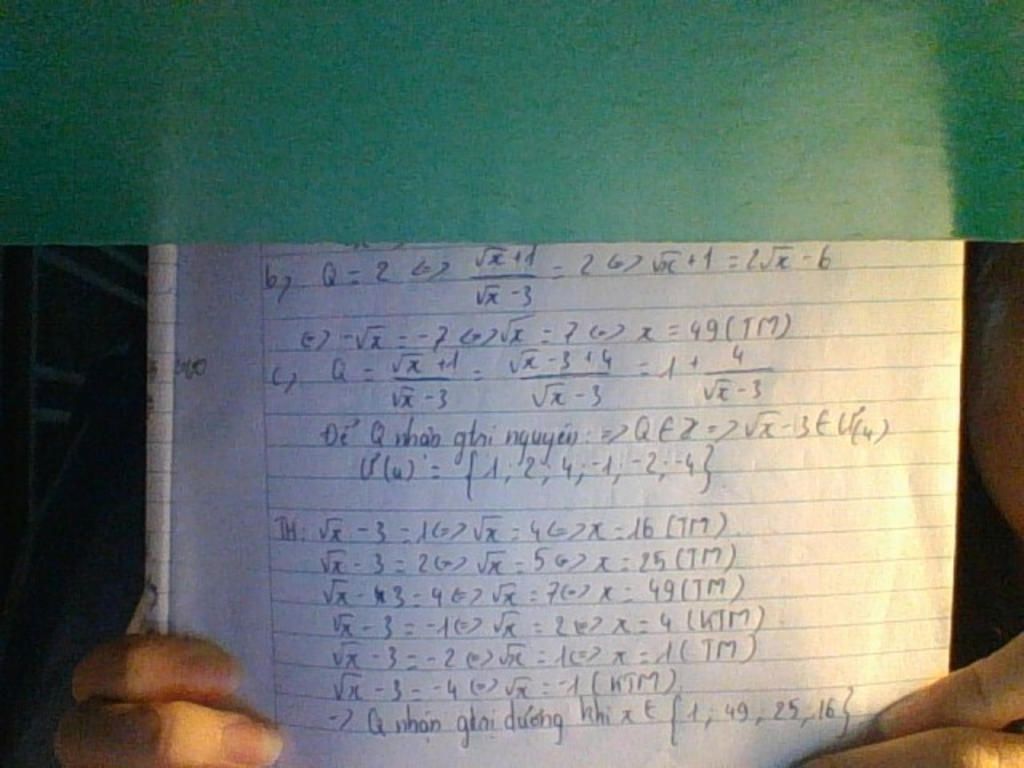 b, Q = 2 <=> √x+1 / √x-3 = 2 <=> √x+1 = 2√x-6
<=> -√x = -7 <=> √x = 7 <=> x = 49 (TM)
c, Q = √x+1 / √x-3 = √x-3+4 / √x-3 = 1 + 4 / √x-3
Để Q nhận gtrị nguyên: => Q ∈ Z => √x-3 ∈ Ư(4)
Ư(4) = {1; 2; 4; -1; -2; -4}
TH: √x - 3 = 1 <=> √x = 4 <=> x = 16 (TM).
√x - 3 = 2 <=> √x = 5 <=> x = 25 (TM)
√x - 3 = 4 <=> √x = 7 <=> x = 49 (TM)
√x - 3 = -1 <=> √x = 2 <=> x = 4 (KTM)
√x - 3 = -2 <=> √x = 1 <=> x = 1 (TM)
√x - 3 = -4 <=> √x = -1 (KTM)
-> Q nhận gtrị dương khi x ∈ {1; 49; 25; 16}